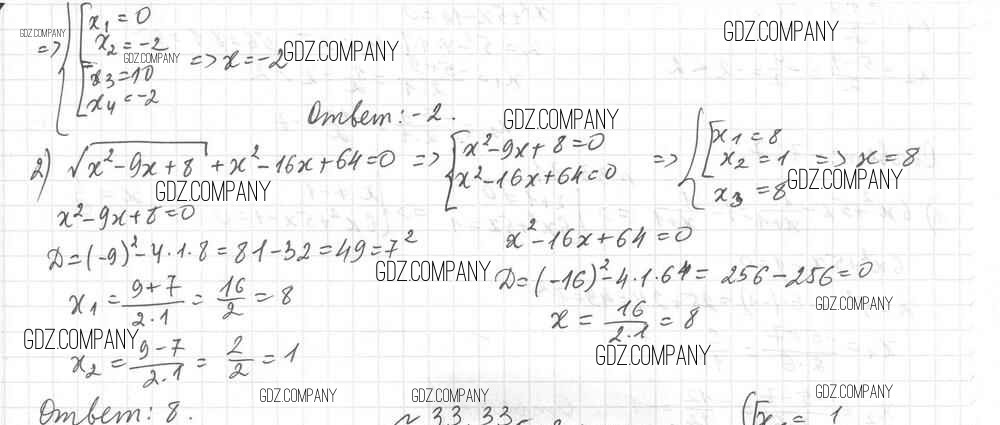 GDZ.COMPANY GDZ.COMPANY
=> { [ x₁ = 0
x₂ = -2
GDZ.COMPANY GDZ.COMPANY
[ x₃ = 10
x₄ = -2 => x = -2
Ответ: -2.
GDZ.COMPANY
2) √(x² - 9x + 8) + x² - 16x + 64 = 0 => { x² - 9x + 8 = 0
x² - 16x + 64 = 0 => { [ x₁ = 8
x₂ = 1
x₃ = 8 => x = 8
GDZ.COMPANY GDZ.COMPANY
x² - 9x + 8 = 0
D = (-9)² - 4·1·8 = 81 - 32 = 49 = 7²
x₁ = (9+7)/(2·1) = 16/2 = 8
x₂ = (9-7)/(2·1) = 2/2 = 1
x² - 16x + 64 = 0
D = (-16)² - 4·1·64 = 256 - 256 = 0
x = 16/(2·1) = 8
GDZ.COMPANY GDZ.COMPANY
GDZ.COMPANY GDZ.COMPANY
GDZ.COMPANY GDZ.COMPANY GDZ.COMPANY
Ответ: 8.
33.33